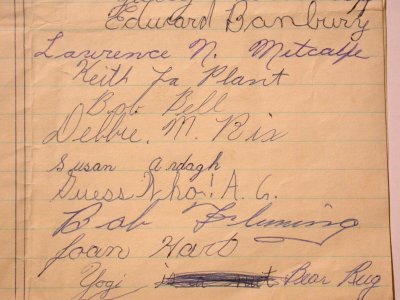 Edward Banbury
Lawrence N. Metcalfe
Keith La Plant
Bob Bell
Debbie. M. Rix
Susan Ardagh
Guess Who! A. G.
Bob Fleming
Joan Hart
Yogi Bear Bug